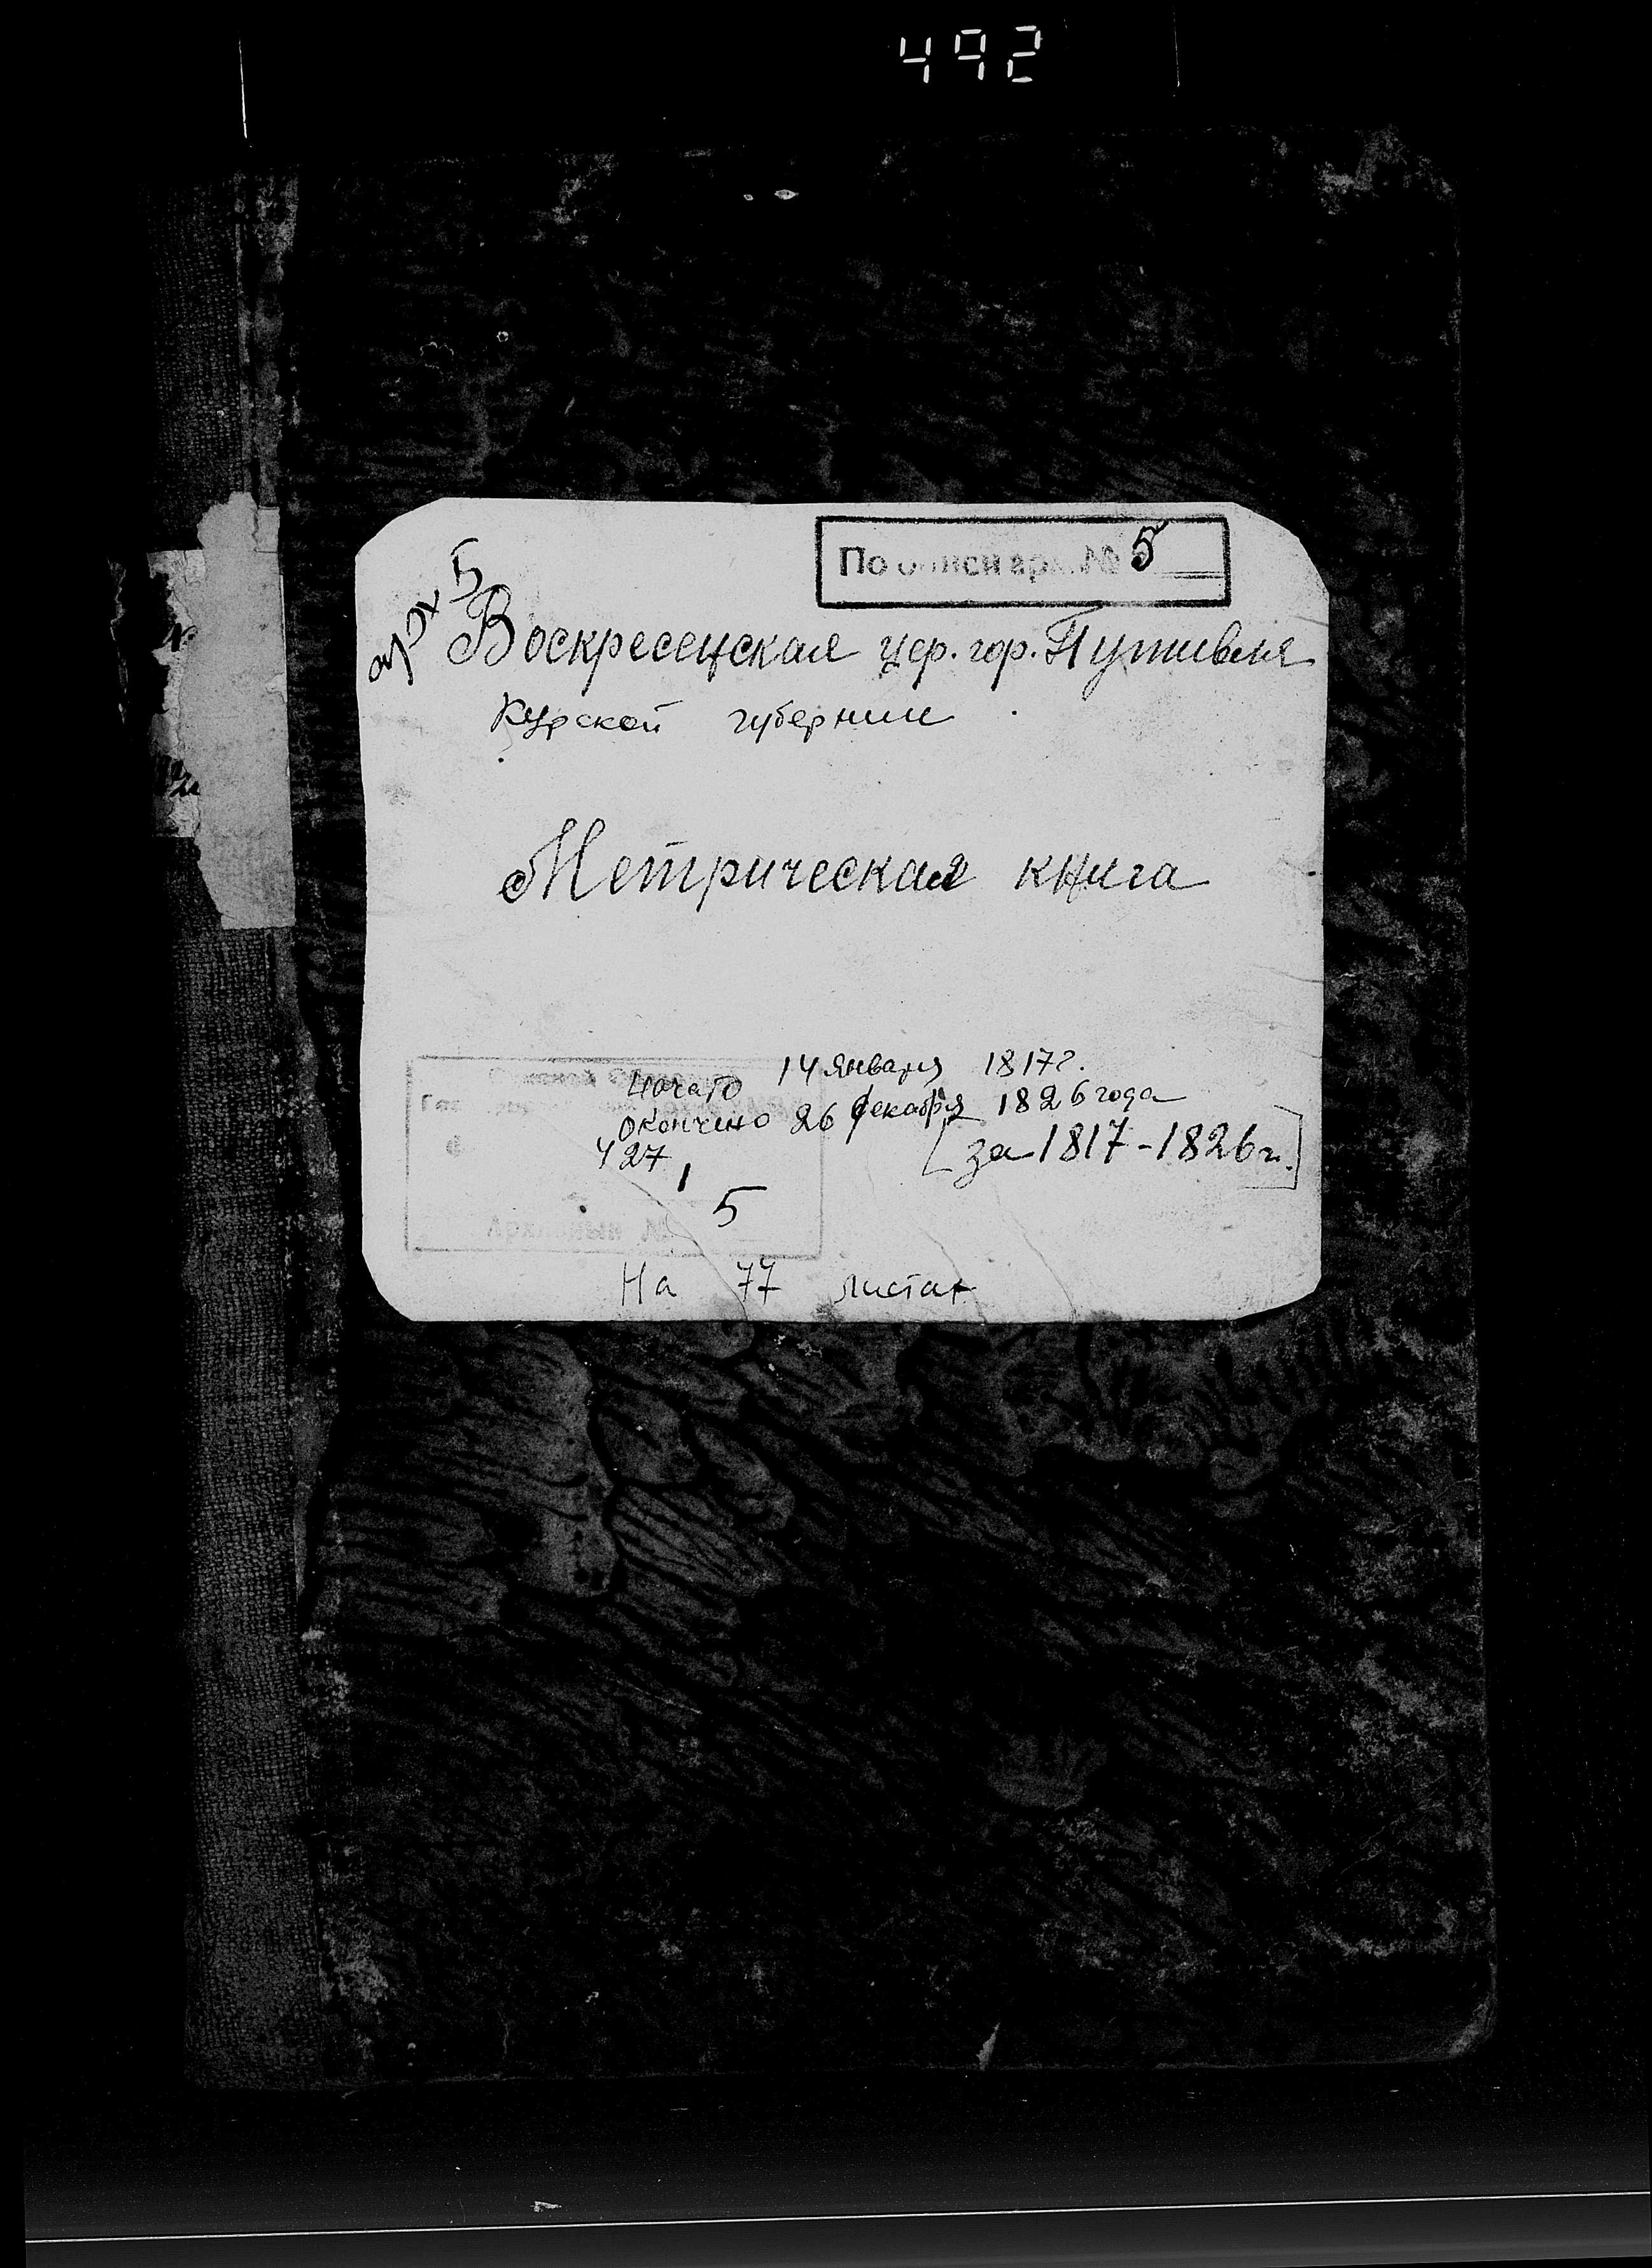 492
По описи арх. № 5
арх 5
Воскресенская цер. гор. Путивля
Курской губернии
Метрическая книга
Начато 14 января 1817 г.
окончено 26 декабря 1826 года
[за 1817-1826 г.]
427
1
5
Архивный №
На 77 листах